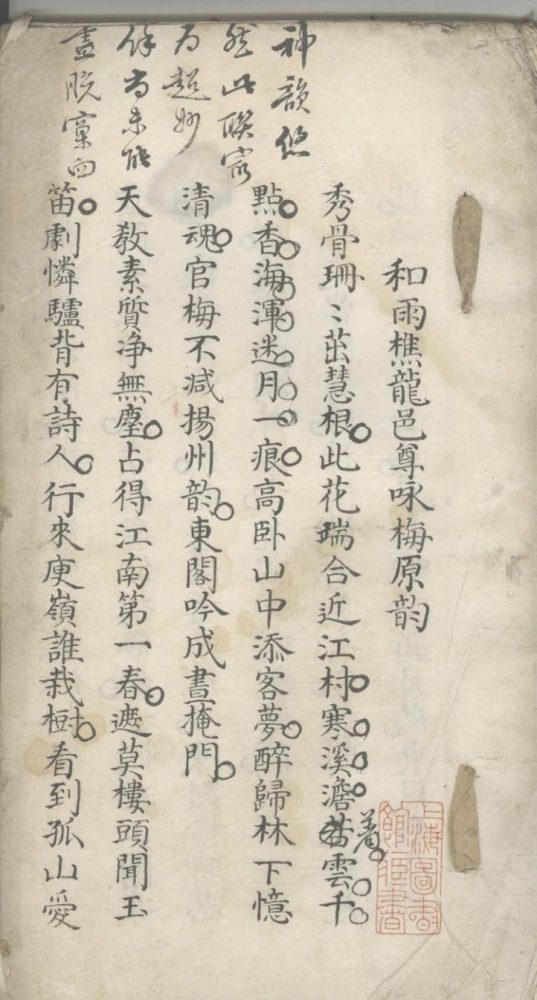 神韻悠
然此聯㝡
为超妙
餘尚未能
盡脫窠臼
和雨樵龍邑尊咏梅原韵
秀骨珊〻茁慧根此花瑞合近江村寒溪澹着雲千
點香海渾迷月一痕高卧山中添客夢醉歸林下憶
清魂官梅不減揚州韵東閣吟成晝掩門
天教素質净無塵占得江南第一春遮莫樓頭聞玉
笛劇憐驢背有詩人行來庾嶺誰栽樹看到孤山愛
上海圖書
館藏書